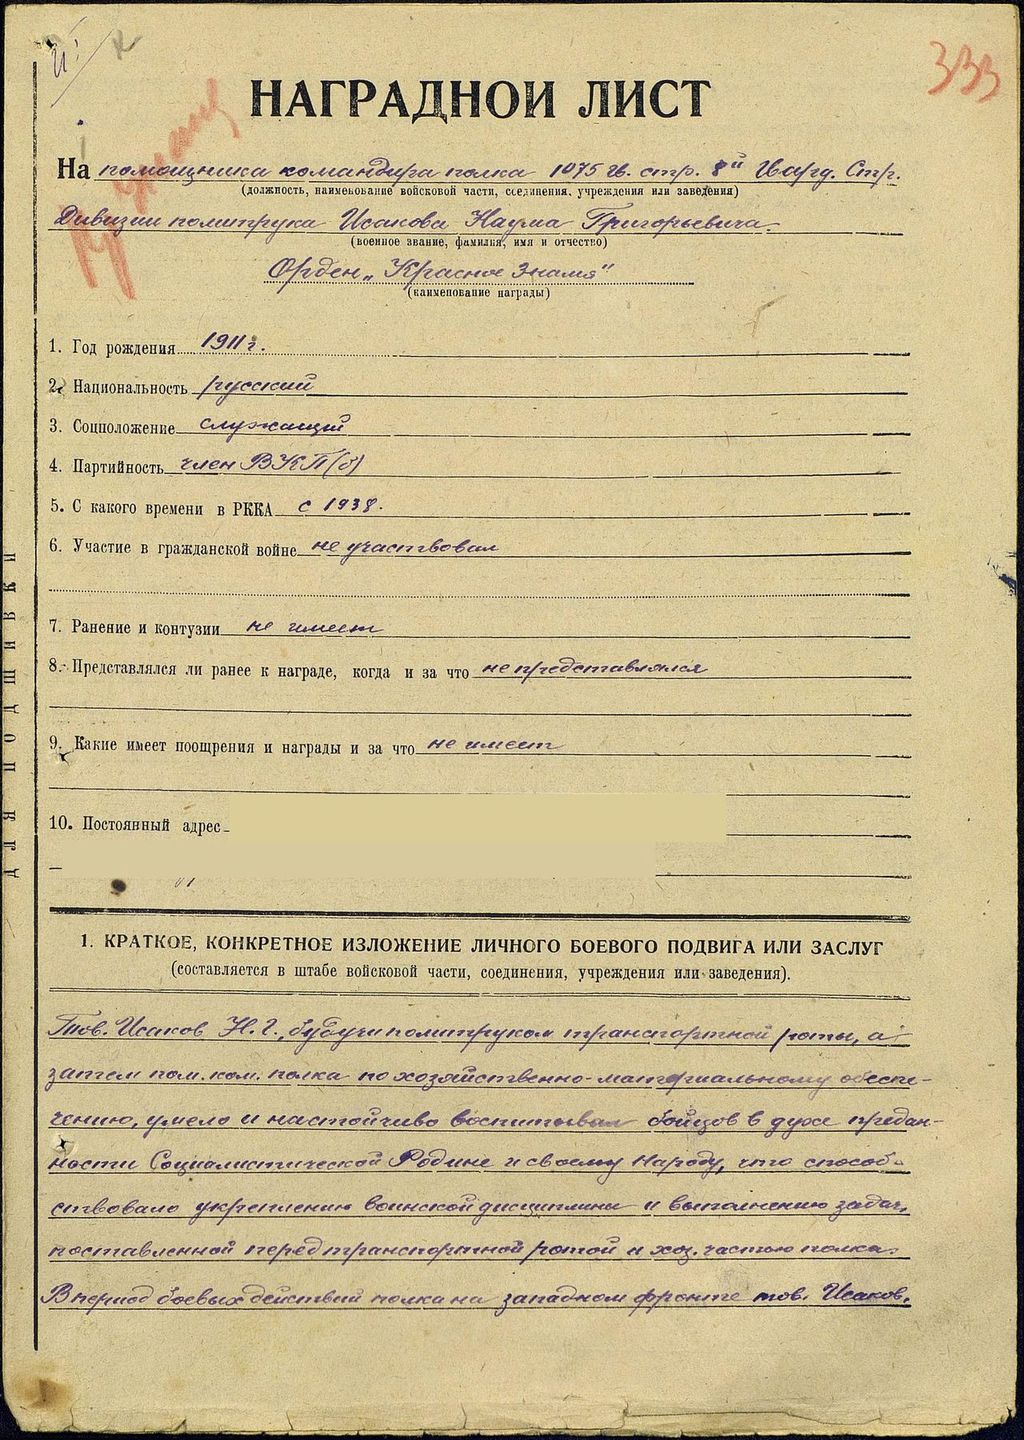 333
НАГРАДНОЙ ЛИСТ
На помощника командира полка 1075 гв. стр. 8й Гвард. Стр.
(должность, наименование войсковой части, соединения, учреждения или заведения)
Дивизии политрука Исакова Наума Григорьевича.
(военное звание, фамилия, имя и отчество)
Орден „Красное Знамя"
(наименование награды)
1. Год рождения 1911 г.
2. Национальность русский
3. Соцположение служащий
4. Партийность член ВКП(б)
5. С какого времени в РККА с 1938.
6. Участие в гражданской войне не участвовал
7. Ранение и контузии не имеет
8. Представлялся ли ранее к награде, когда и за что не представлялся
9. Какие имеет поощрения и награды и за что не имеет
10. Постоянный адрес
ДЛЯ ПОДШИВКИ
1. КРАТКОЕ, КОНКРЕТНОЕ ИЗЛОЖЕНИЕ ЛИЧНОГО БОЕВОГО ПОДВИГА ИЛИ ЗАСЛУГ
(составляется в штабе войсковой части, соединения, учреждения или заведения).
Тов. Исаков Н. Г., будучи политруком транспортной роты, а
затем пом. ком. полка по хозяйственно-материальному обеспе-
чению, умело и настойчиво воспитывал бойцов в духе предан-
ности Социалистической Родине и своему Народу, что способ-
ствовало укреплению воинской дисциплины и выполнению задач,
поставленной перед транспортной ротой и хоз. частью полка.
В период боевых действий полка на западном фронте тов. Исаков.